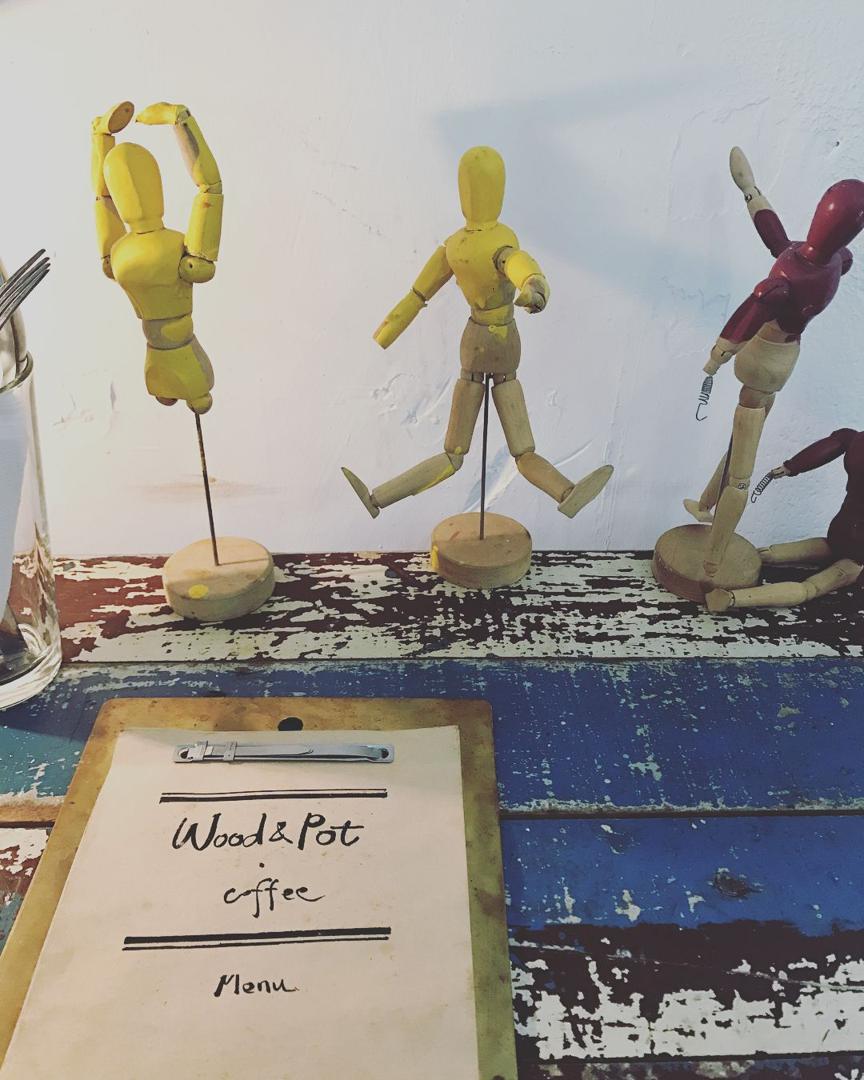 Wood & Pot
coffee
Menu